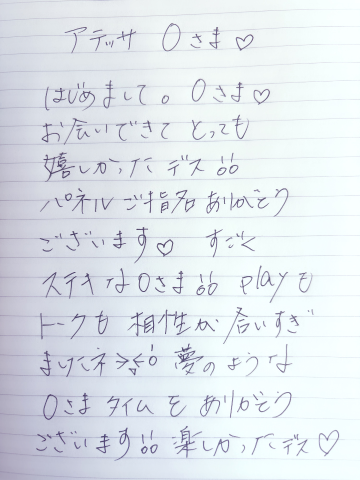 アテッサ Oさま♡
はじめまして。Oさま♡
お会いできて とっても
嬉しかったデス!!
パネルご指名ありがとう
ございます♡ すごく
ステキなOさま!! playも
トークも 相性が合いすぎ
ましたネ 夢のような
Oさまタイムをありがとう
ございます!! 楽しかったデス♡